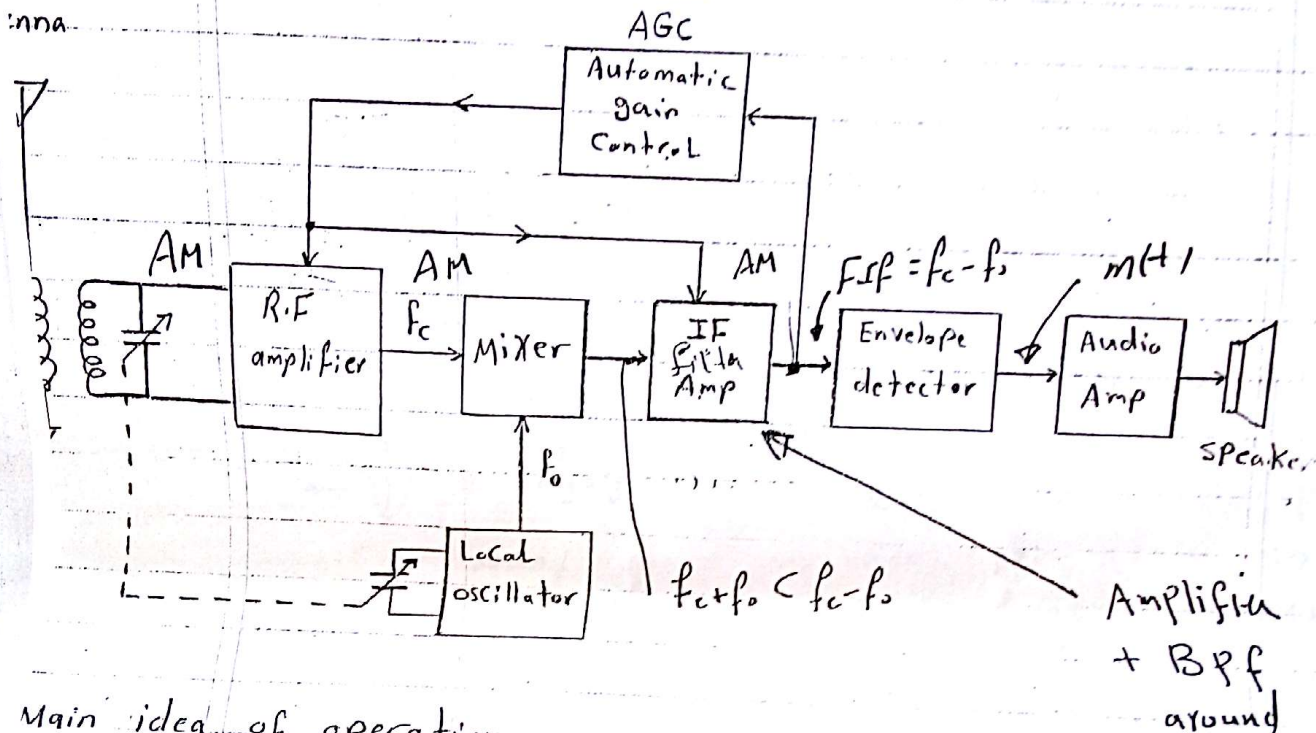 enna
AGC
Automatic
gain
Control
AM
AM
AM
FIf = fc - fo
m(t)
R.F
amplifier
fc
Mixer
IF
filter
Amp
Envelope
detector
Audio
Amp
speaker
fo
Local
oscillator
fc+fo < fc-fo
Amplifier
+ Bpf
around
Main idea of operati